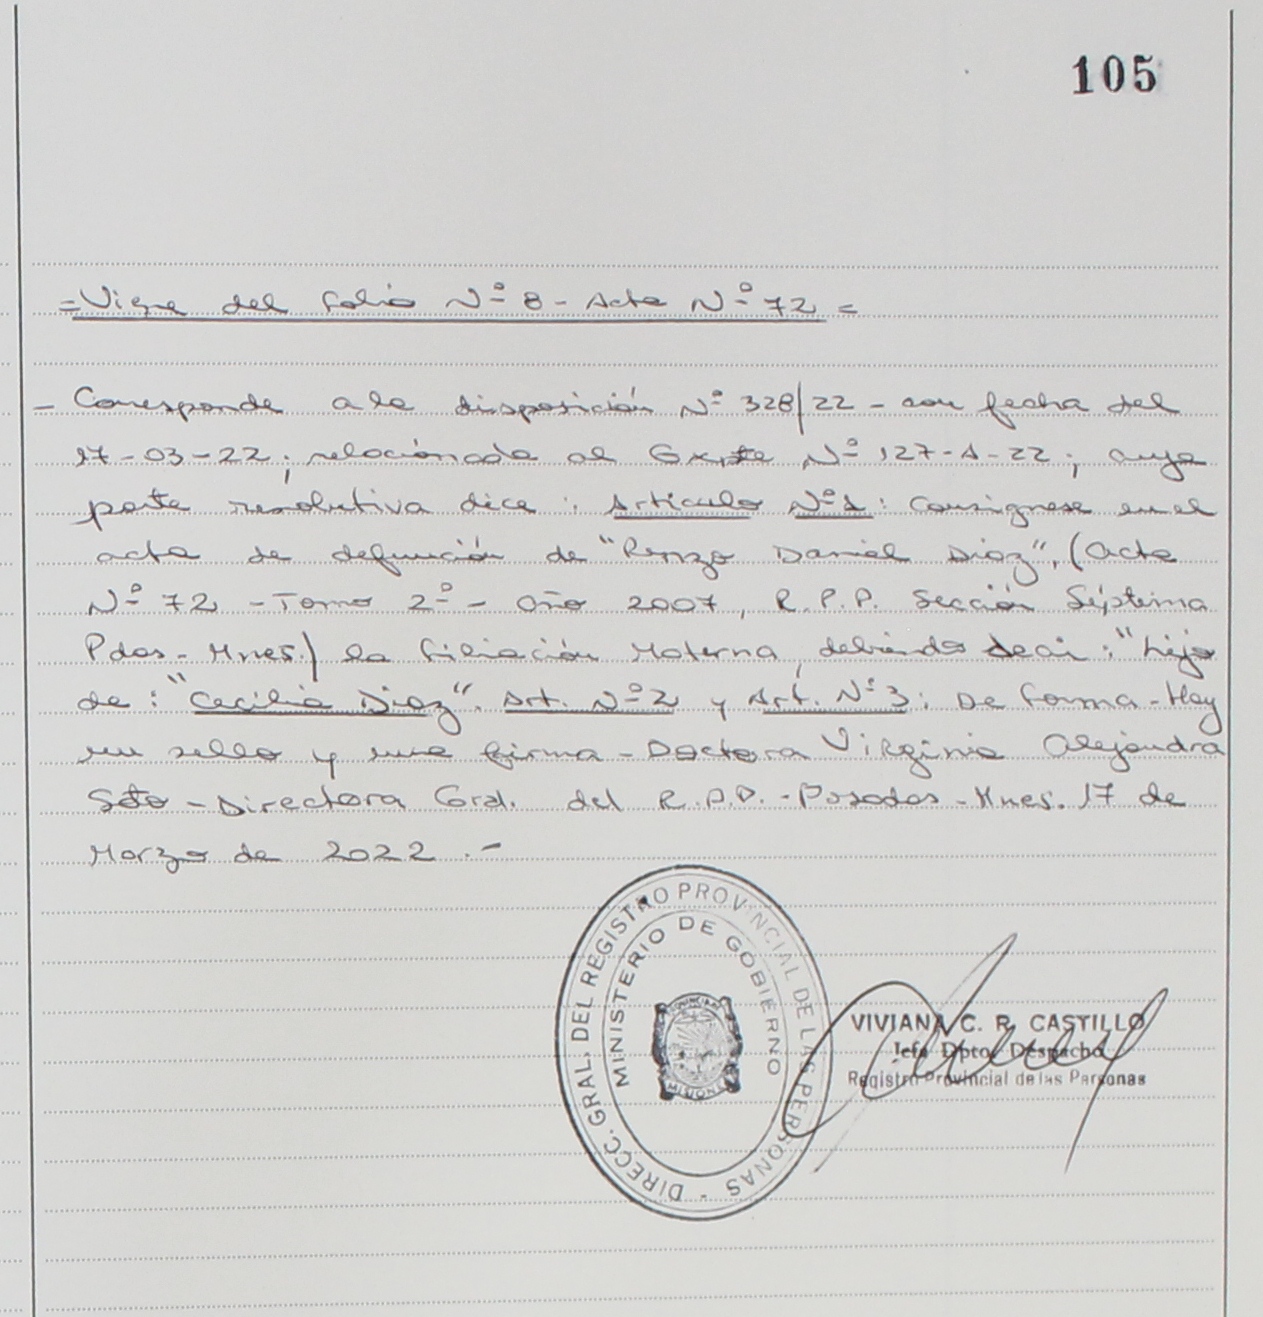 105
= Viene del Folio Nº 8 - Acta Nº 72 =
- Corresponde a la disposición Nº 328/22 - con fecha del
17-03-22; relacionada al Expte Nº 127-A-22; cuya
parte resolutiva dice: Artículo Nº1: Consignese en el
acta de defunción de "Renzo Daniel Diaz", (acta
Nº 72 - Tomo 2º - año 2007, R.P.P. Sección Séptima
Pdas - Mnes.) la filiación Materna, debiendo decir: "hijo
de: "Cecilia Diaz". Art. Nº2 y Art. Nº3: De forma - Hay
un sello y una firma - Doctora Virginia Alejandra
Soto - Directora Gral. del R.P.P. - Posadas - Mnes. 17 de
Marzo de 2022.-
DIRECC. GRAL. DEL REGISTRO PROVINCIAL DE LAS PERSONAS -
MINISTERIO DE GOBIERNO
MISIONES
VIVIANA C. R. CASTILLO
Jefa Dpto. Despacho
Registro Provincial de las Personas